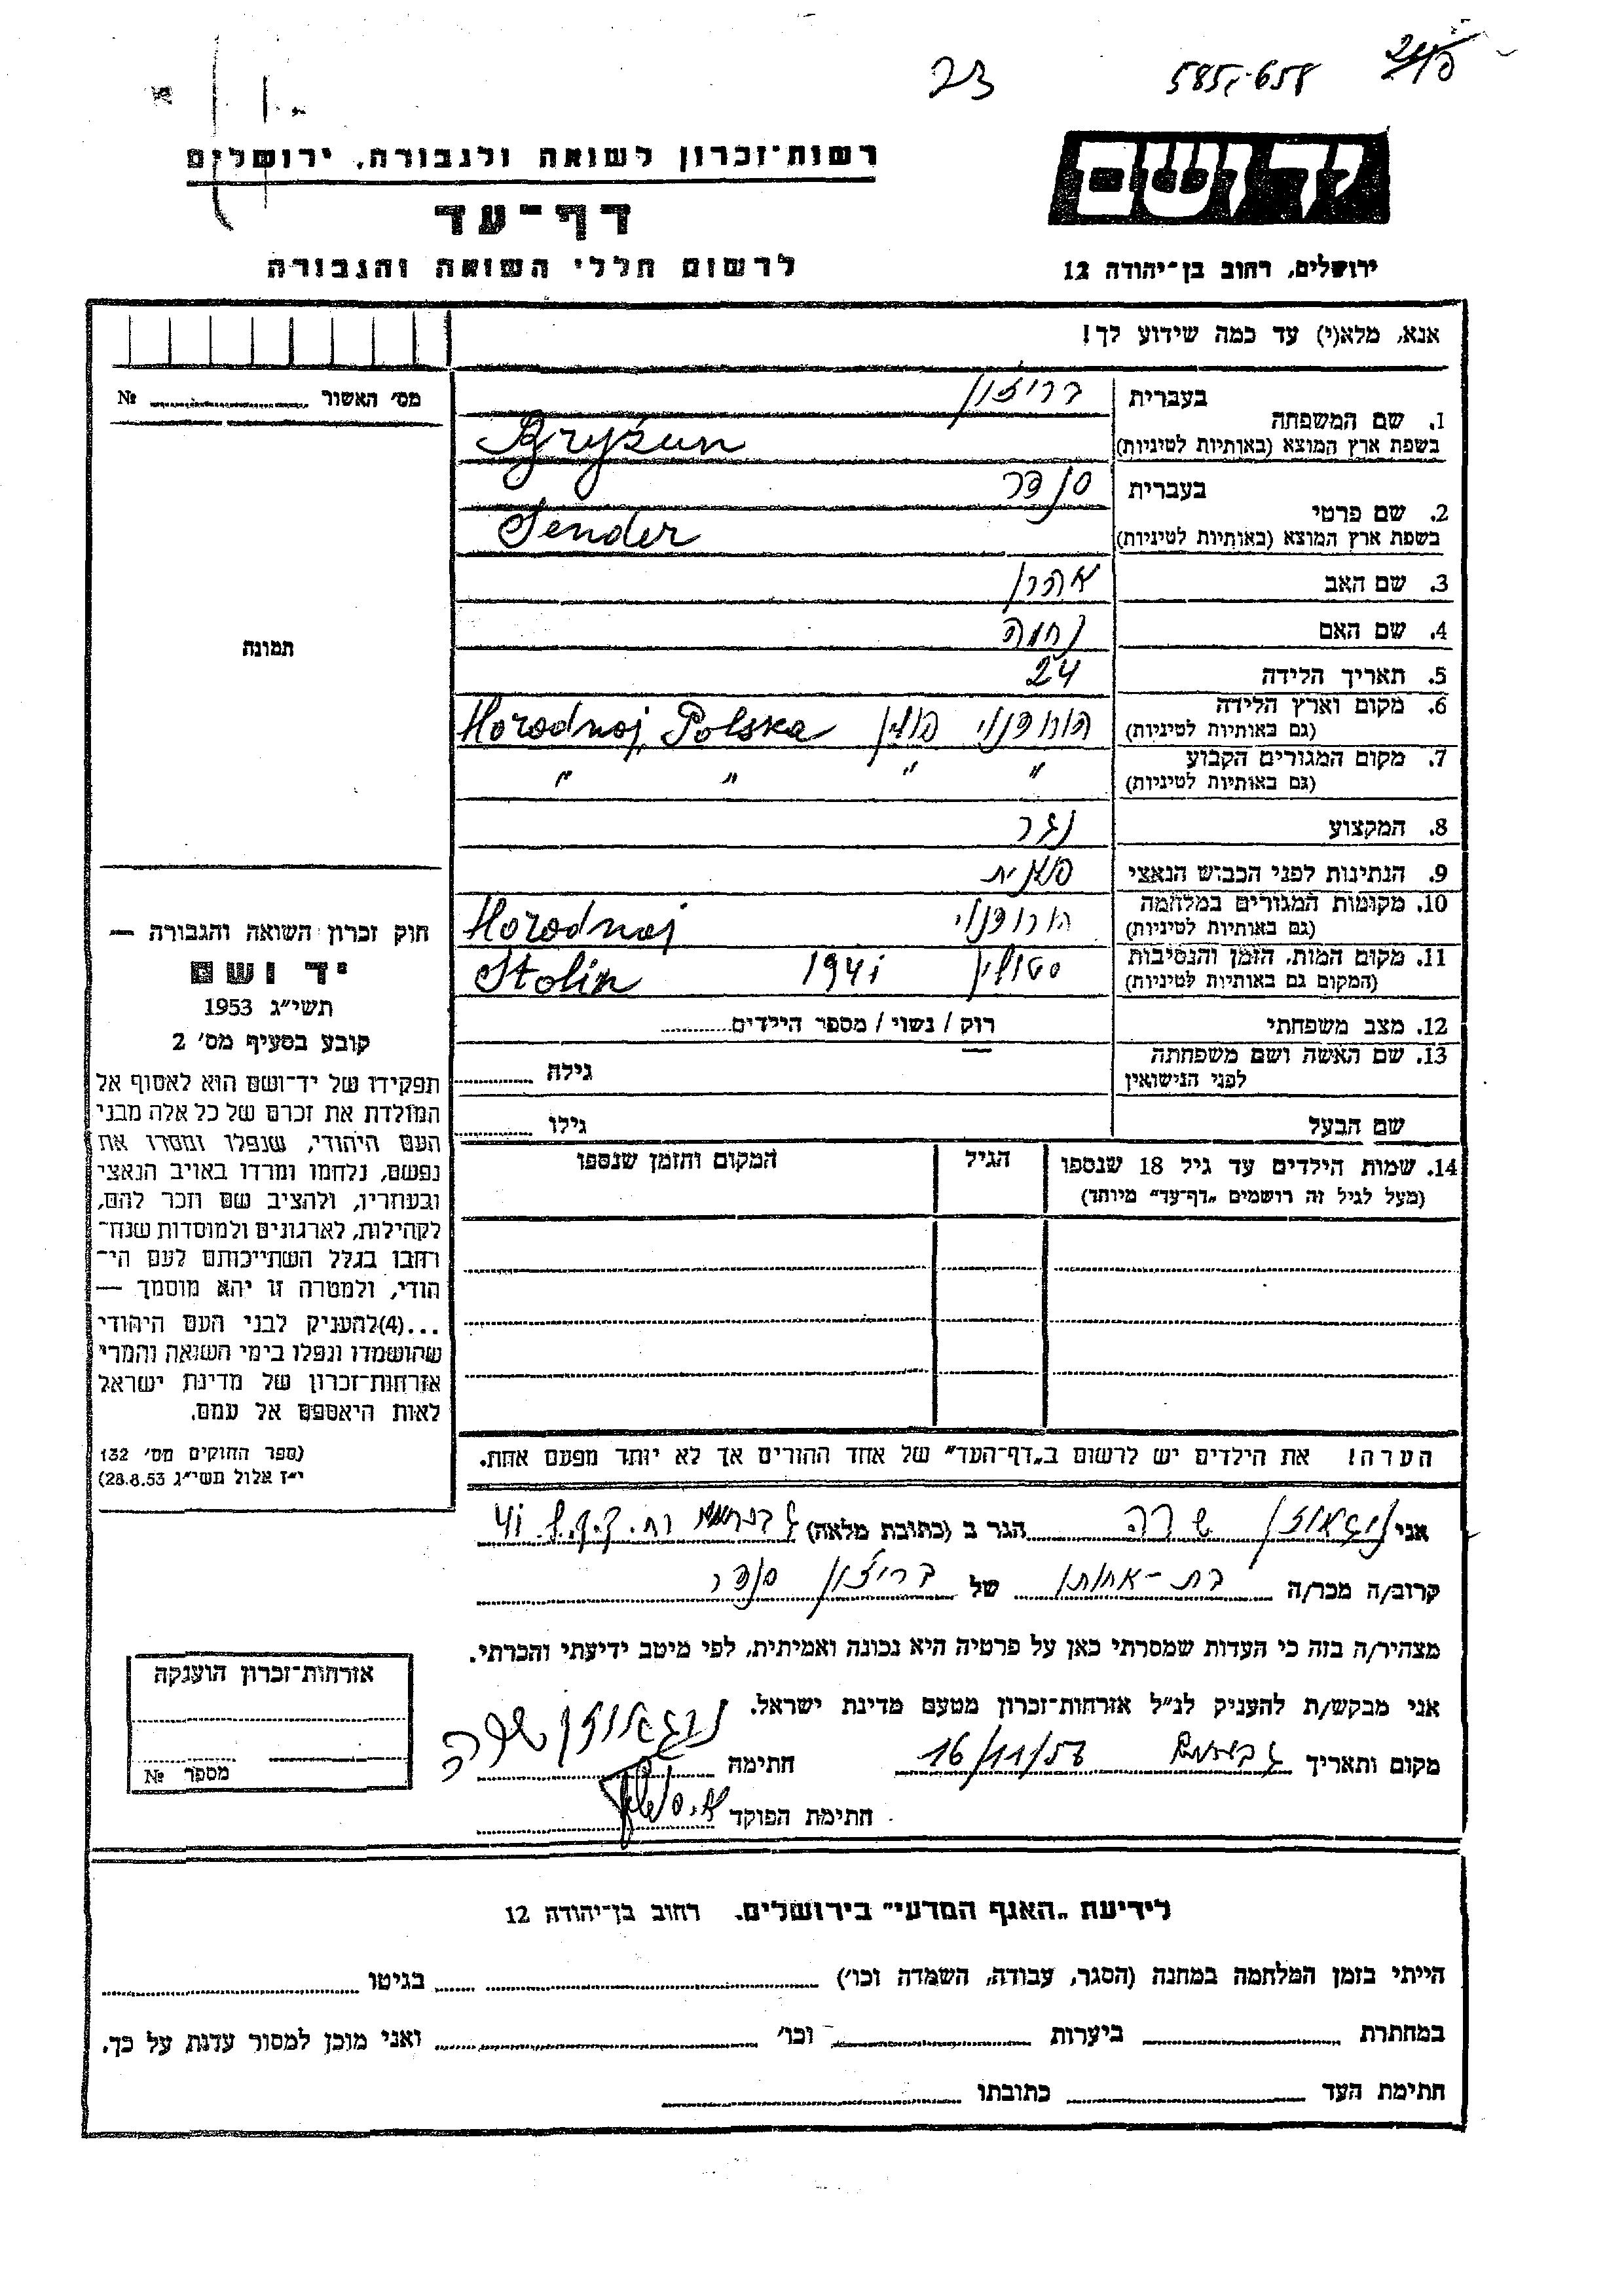 23 585,658
רשות־זכרון לשואה ולגבורה, ירושלים
יד ושם
דף־עד
לרשום חללי השואה והגבורה
ירושלים, רחוב בן־יהודה 12
אנא, מלא(י) עד כמה שידוע לך!
מס' האשור № ....................
1. שם המשפחה
בעברית ברוזון
בשפת ארץ המוצא (באותיות לטיניות) Bryżun
2. שם פרטי
בעברית סנדר
בשפת ארץ המוצא (באותיות לטיניות) Sender
3. שם האב אהרון
4. שם האם נחמה
5. תאריך הלידה 24
6. מקום וארץ הלידה
(גם באותיות לטיניות) הורודנוי פולין Horodnoj, Polska
7. מקום המגורים הקבוע
(גם באותיות לטיניות) " " " "
8. המקצוע נגר
9. הנתינות לפני הכבוש הנאצי פולנית
10. מקומות המגורים במלחמה
(גם באותיות לטיניות) הורודנוי Horodnoj
11. מקום המות, הזמן והנסיבות
(המקום גם באותיות לטיניות) סטולין 1941 Stolin
12. מצב משפחתי רווק / נשוי / מספר הילדים..........
13. שם האשה ושם משפחתה
לפני הנישואין גילה ..........
שם הבעל גילו ..........
14. שמות הילדים עד גיל 18 שנספו הגיל המקום והזמן שנספו
(מעל לגיל זה רושמים „דף־עד" מיוחד)
הערה! את הילדים יש לרשום ב„דף־העד" של אחד ההורים אך לא יותר מפעם אחת.
תמונה
חוק זכרון השואה והגבורה —
יד ושם
תשי״ג 1953
קובע בסעיף מס' 2
תפקידו של יד־ושם הוא לאסוף אל
המולדת את זכרם של כל אלה מבני
העם היהודי, שנפלו ומסרו את
נפשם, נלחמו ומרדו באויב הנאצי
ובעוזריו, ולהציב שם וזכר להם,
לקהילות, לארגונים ולמוסדות שנח־
רחבו בגלל השתייכותם לעם הי־
הודי, ולמטרה זו יהא מוסמך —
...(4)להעניק לבני העם היהודי
שהושמדו ונפלו בימי השואה והמרי
אזרחות־זכרון של מדינת ישראל
לאות היאספם אל עמם.
(ספר החוקים מס' 132
י״ז אלול תשי״ג 28.8.53)
אני שרה הגר ב (כתובת מלאה) גבעתיים רח. ק.ק.ל 41
קרוב/ה מכר/ה בת-אחותו של ברוזון סנדר
מצהיר/ה בזה כי העדות שמסרתי כאן על פרטיה היא נכונה ואמיתית, לפי מיטב ידיעתי והכרתי.
אני מבקש/ת להעניק לנ״ל אזרחות־זכרון מטעם מדינת ישראל.
מקום ותאריך גבעתיים 16/11/56 חתימה שרה
חתימת הפוקד
אזרחות־זכרון הוענקה
מספר №
לידיעת „האגף המדעי" בירושלים, רחוב בן־יהודה 12
הייתי בזמן המלחמה במחנה (הסגר, עבודה, השמדה וכו') .................... בגיטו ....................
במחתרת .................... ביערות .................... וכו' .................... ואני מוכן למסור עדות על כך.
חתימת העד .................... כתובתו ....................